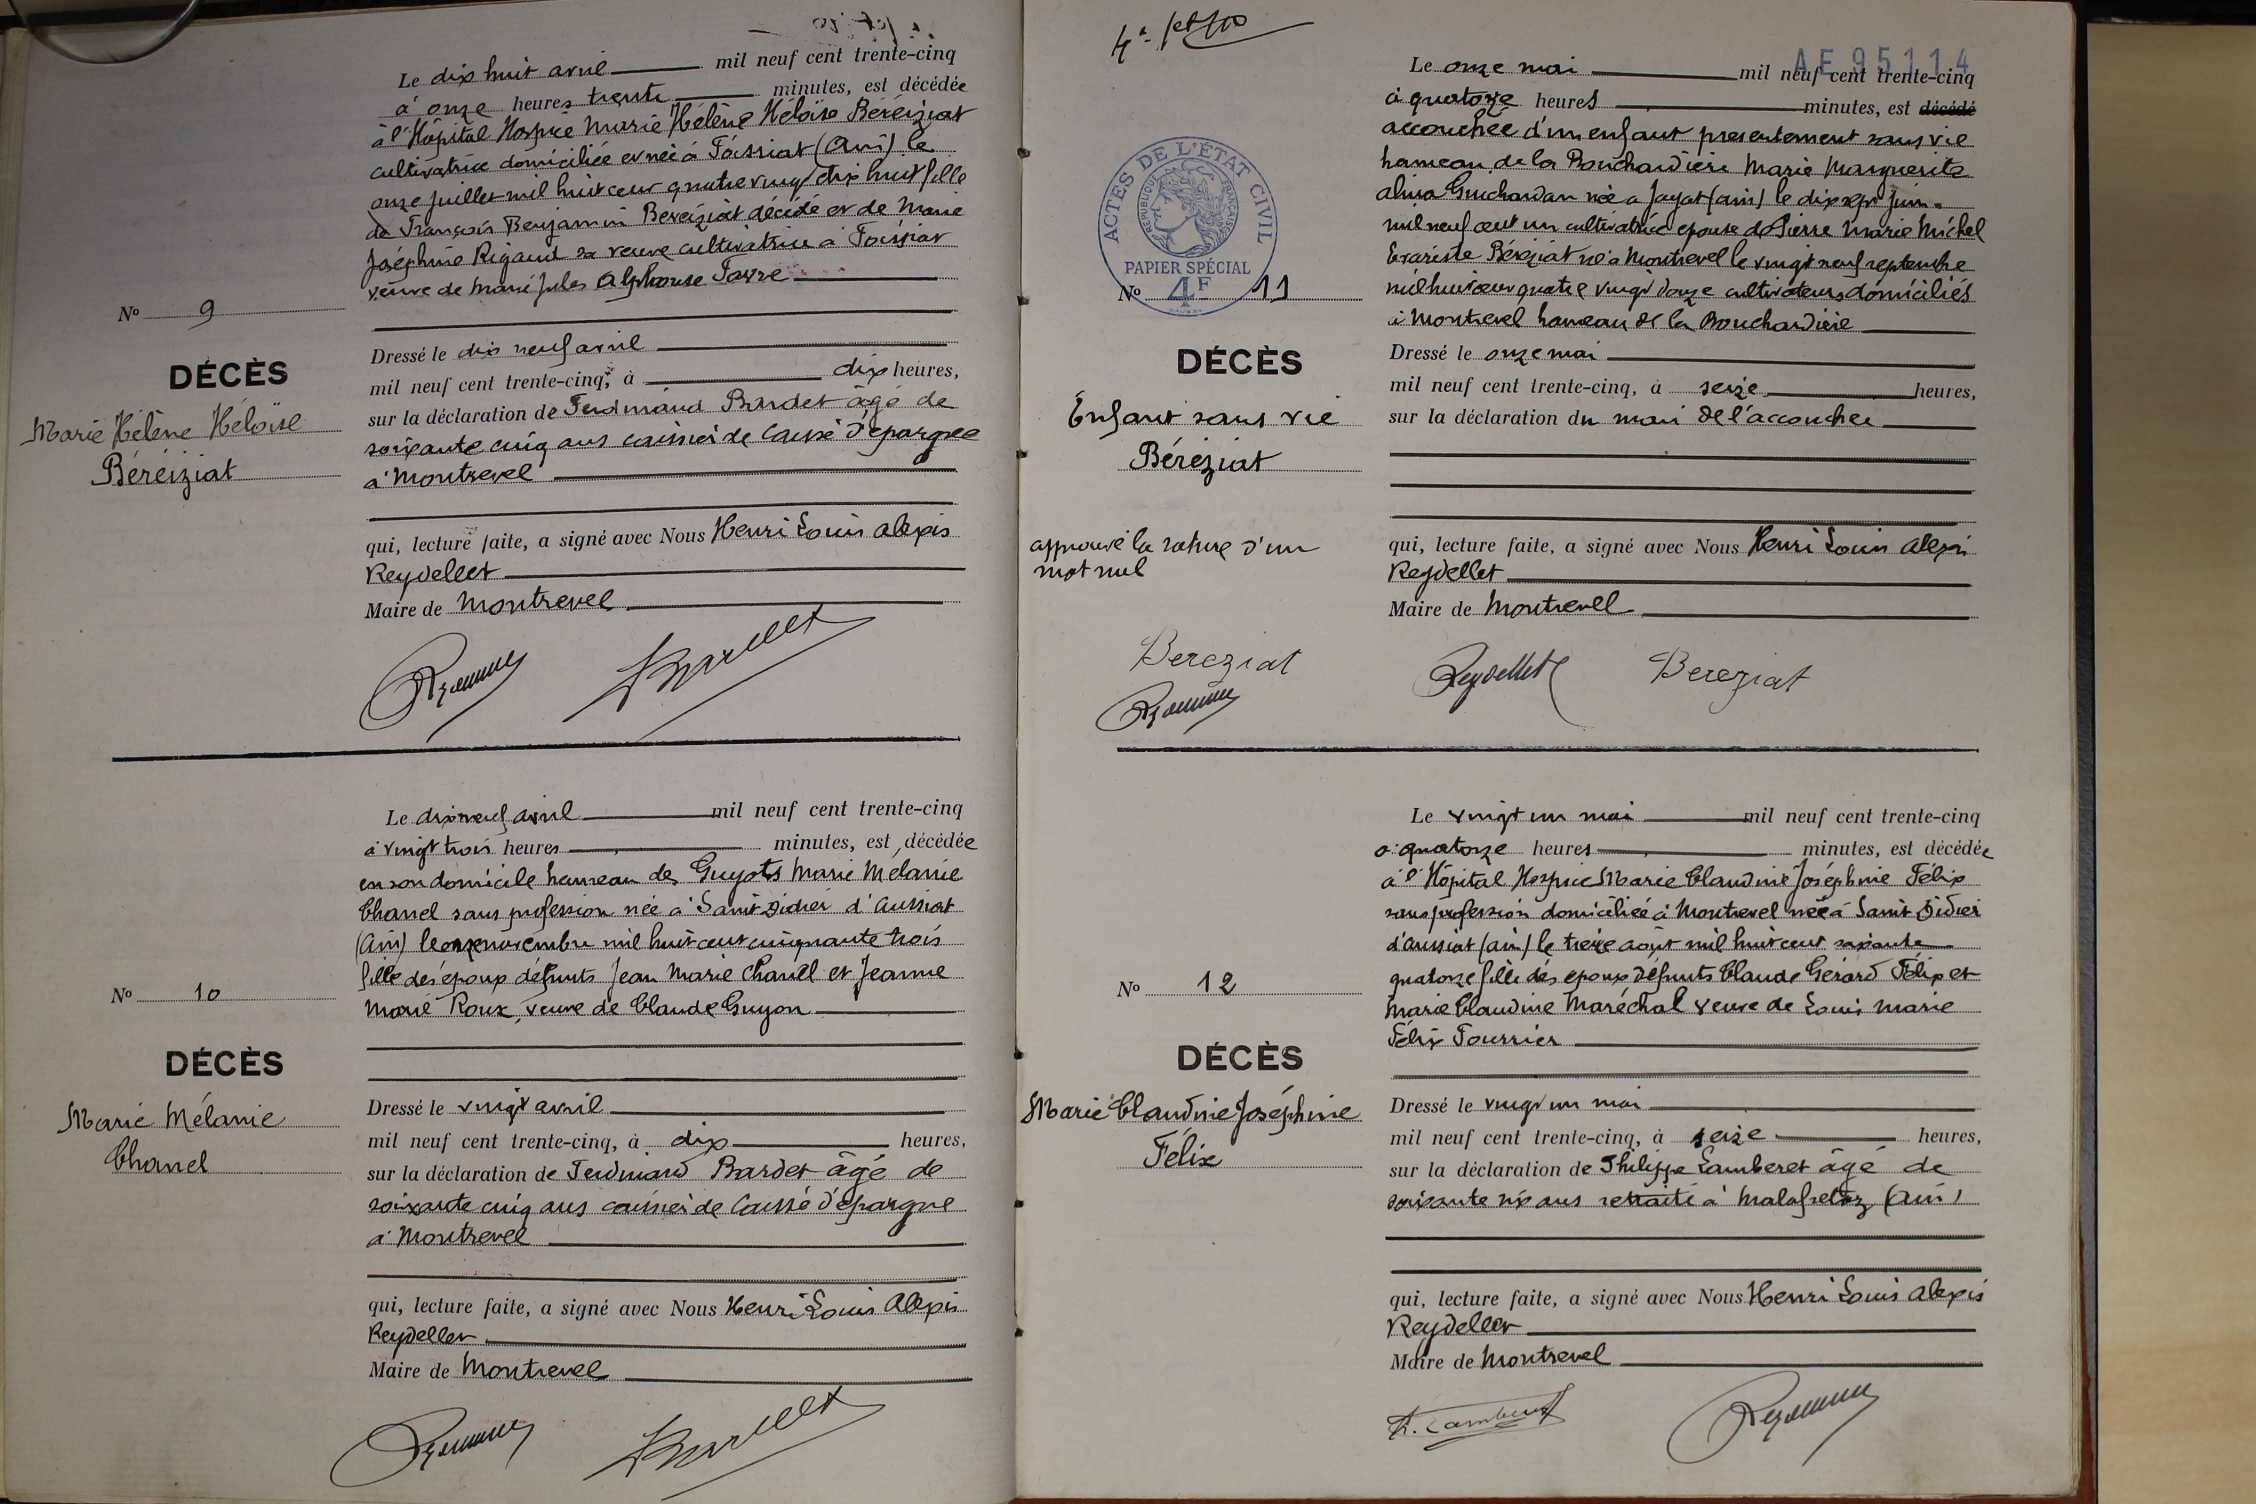 Le dix huit avril mil neuf cent trente-cinq
à onze heures trente minutes, est décédée
à l'Hôpital Hospice Marie Hélène Héloïse Béréiziat
cultivatrice domiciliée et née à Foissiat (Ain) le
onze juillet mil huit cent quatre vingt dix huit fille
de François Benjamin Béréiziat décédé et de Marie
Joséphine Rigaud sa veuve cultivatrice à Foissiat
veuve de Marie Jules Alphonse Favre
No 9
DÉCÈS
Marie Hélène Héloïse
Béréiziat
Dressé le dix neuf avril
mil neuf cent trente-cinq, à dix heures,
sur la déclaration de Ferdinand Bardet âgé de
soixante cinq ans caissier de Caisse d'épargne
à Montrevel
qui, lecture faite, a signé avec Nous Henri Louis Alexis
Reydellet
Maire de Montrevel
Le dix neuf avril mil neuf cent trente-cinq
à vingt trois heures minutes, est décédée
en son domicile hameau des Guyots Marie Mélanie
Chanel sans profession née à Saint Didier d'Aussiat
(Ain) le onze novembre mil huit cent cinquante trois
fille des époux défunts Jean Marie Chanel et Jeanne
Marie Roux, veuve de Claude Guyon
No 10
DÉCÈS
Marie Mélanie
Chanel
Dressé le vingt avril
mil neuf cent trente-cinq, à dix heures,
sur la déclaration de Ferdinand Bardet âgé de
soixante cinq ans caissier de Caisse d'épargne
à Montrevel
qui, lecture faite, a signé avec Nous Henri Louis Alexis
Reydellet
Maire de Montrevel
AE 95114
Le onze mai mil neuf cent trente-cinq
à quatorze heures minutes, est décédé
accouchée d'un enfant présentement sans vie
hameau de la Bouchardière Marie Marguerite
Alina Guichardan née à Jayat (Ain) le dix sept juin
mil neuf cent un cultivatrice épouse de Pierre Marie Michel
Evariste Béréziat né à Montrevel le vingt neuf septembre
mil huit cent quatre vingt douze cultivateurs domiciliés
à Montrevel hameau de la Bouchardière
ACTES DE L'ÉTAT CIVIL
RÉPUBLIQUE FRANÇAISE
PAPIER SPÉCIAL
4F
No 11
DÉCÈS
Enfant sans vie
Béréziat
Dressé le onze mai
mil neuf cent trente-cinq, à seize heures,
sur la déclaration du mari de l'accouchée
approuvé la rature d'un
mot nul
qui, lecture faite, a signé avec Nous Henri Louis Alexis
Reydellet
Maire de Montrevel
Bereziat Reydellet Bereziat
Le vingt un mai mil neuf cent trente-cinq
à quatorze heures minutes, est décédée
à l'Hôpital Hospice Marie Claudine Joséphine Félix
sans profession domiciliée à Montrevel née à Saint Didier
d'Aussiat (Ain) le treize août mil huit cent soixante
quatorze fille des époux défunts Claude Gérard Félix et
Marie Claudine Maréchal veuve de Louis Marie
Félix Fournier
No 12
DÉCÈS
Marie Claudine Joséphine
Félix
Dressé le vingt un mai
mil neuf cent trente-cinq, à seize heures,
sur la déclaration de Philippe Lamberet âgé de
soixante six ans retraité à Malafretaz (Ain)
qui, lecture faite, a signé avec Nous Henri Louis Alexis
Reydellet
Maire de Montrevel